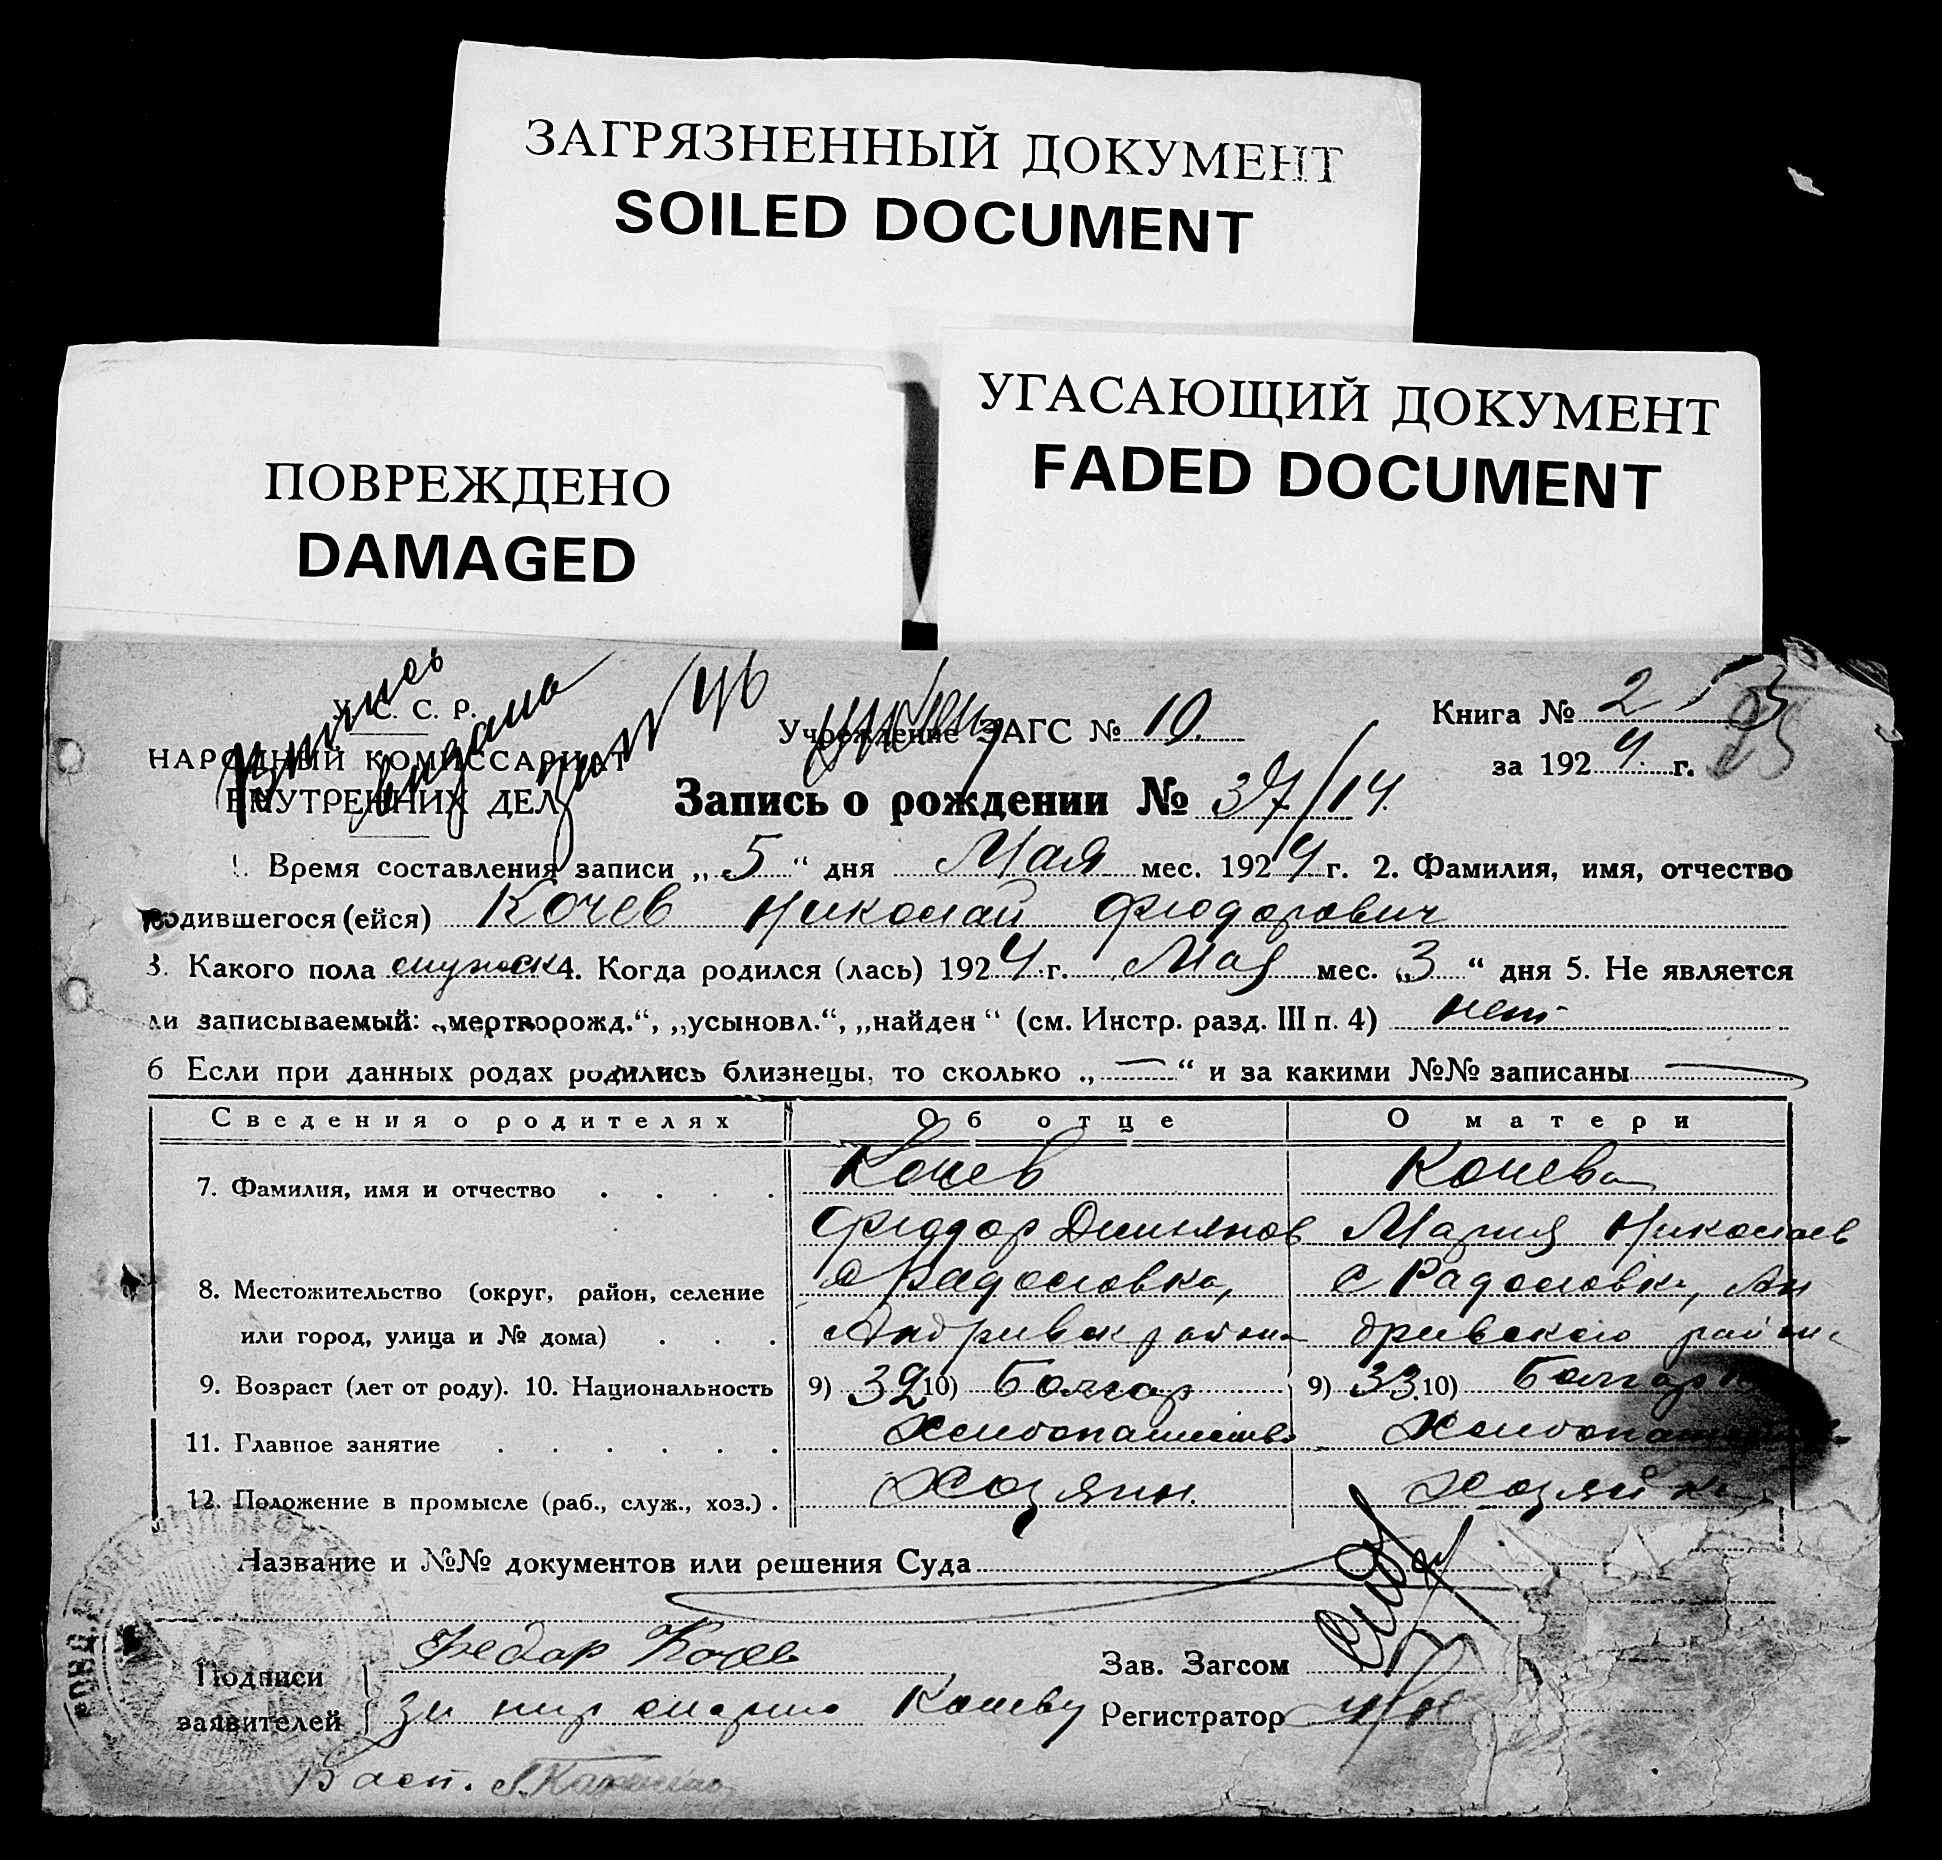 ЗАГРЯЗНЕННЫЙ ДОКУМЕНТ
SOILED DOCUMENT
УГАСАЮЩИЙ ДОКУМЕНТ
FADED DOCUMENT
ПОВРЕЖДЕНО
DAMAGED
У. С. С. Р.
НАРОДНЫЙ КОМИССАРИАТ
ВНУТРЕННИХ ДЕЛ
выдана
Учреждение ЗАГС № 10.
Книга № 2
за 1924 г.
Запись о рождении № 37/14.
1. Время составления записи „5“ дня Мая мес. 1924 г. 2. Фамилия, имя, отчество
родившегося (ейся) Кочев Николай Фюдорович
3. Какого пола мужск 4. Когда родился (лась) 1924 г. Мая мес. „3“ дня 5. Не является
ли записываемый: „мертворожд.“, „усыновл.“, „найден“ (см. Инстр. разд. III п. 4) нет
6 Если при данных родах родились близнецы, то сколько „—“ и за какими №№ записаны —
Сведения о родителях Об отце О матери
7. Фамилия, имя и отчество Кочев Кочева
Фюдор Димьянов Мария Николаев
8. Местожительство (округ, район, селение с Радоловка, с Радоловка, Ан
или город, улица и № дома) Андривск района дривского района
9. Возраст (лет от роду). 10. Национальность 9) 32 10) Болгар 9) 33 10) Болгарк
11. Главное занятие Хлибопашество Хлибопаш
12. Положение в промысле (раб., служ., хоз.) Хозяин. Хозяйка
Название и №№ документов или решения Суда
Подписи заявителей
Федор Кочев
за нир марию Кочеву
Зав. Загсом
Регистратор